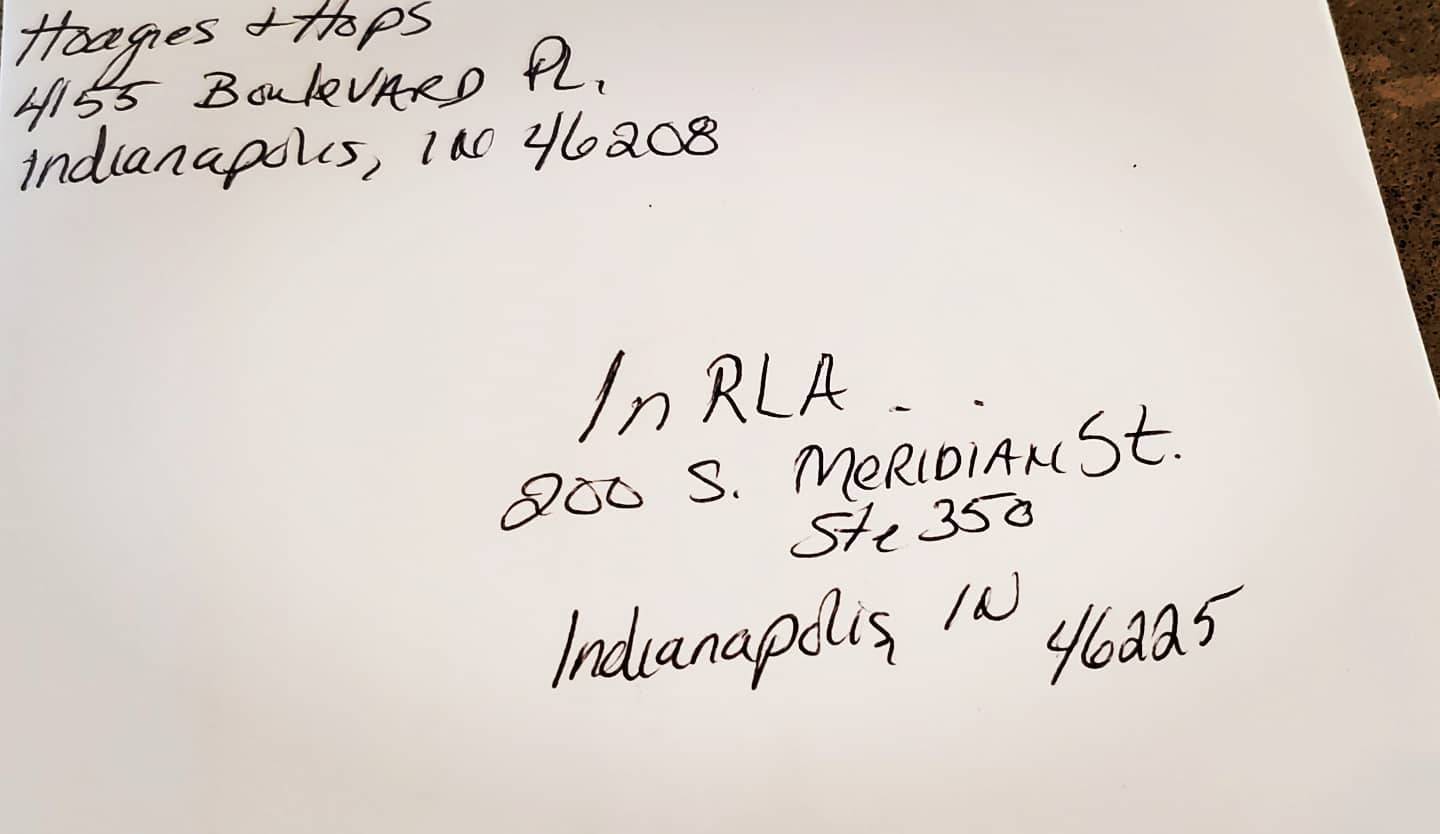 Hoagies + Hops
4155 Boulevard Pl.
Indianapolis, IN 46208
In RLA
200 S. Meridian St.
Ste 350
Indianapolis, IN 46225